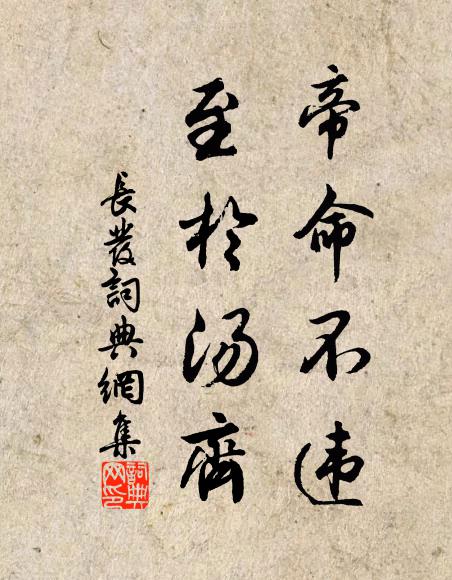 帝命不违
至於汤齊
長發詞典網集
詞典
网印